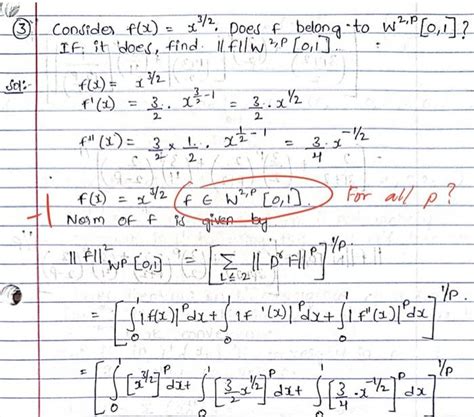 ③ Consider f(x) = x^{3/2}. Does f belong to W^{2,P}[0,1]?
If it does, find ||f||W^{2,P}[0,1].
Sol:- f(x) = x^{3/2}
f'(x) = 3/2 · x^{3/2 - 1} = 3/2 · x^{1/2}
f''(x) = 3/2 × 1/2 · x^{1/2 - 1} = 3/4 · x^{-1/2}
f(x) = x^{3/2} f ∈ W^{2,P}[0,1]. For all p?
-1 Norm of f is given by
||f||^2 W^P[0,1] = [∑_{1≤2} ||D^r f||^P]^{1/P}.
= [∫_0^1 |f(x)|^P dx + ∫_0^1 |f'(x)|^P dx + ∫_0^1 |f''(x)|^P dx]^{1/P}.
= [∫_0^1 [x^{3/2}]^P dx + ∫_0^1 [3/2 x^{1/2}]^P dx + ∫_0^1 [3/4 · x^{-1/2}]^P dx]^{1/P}